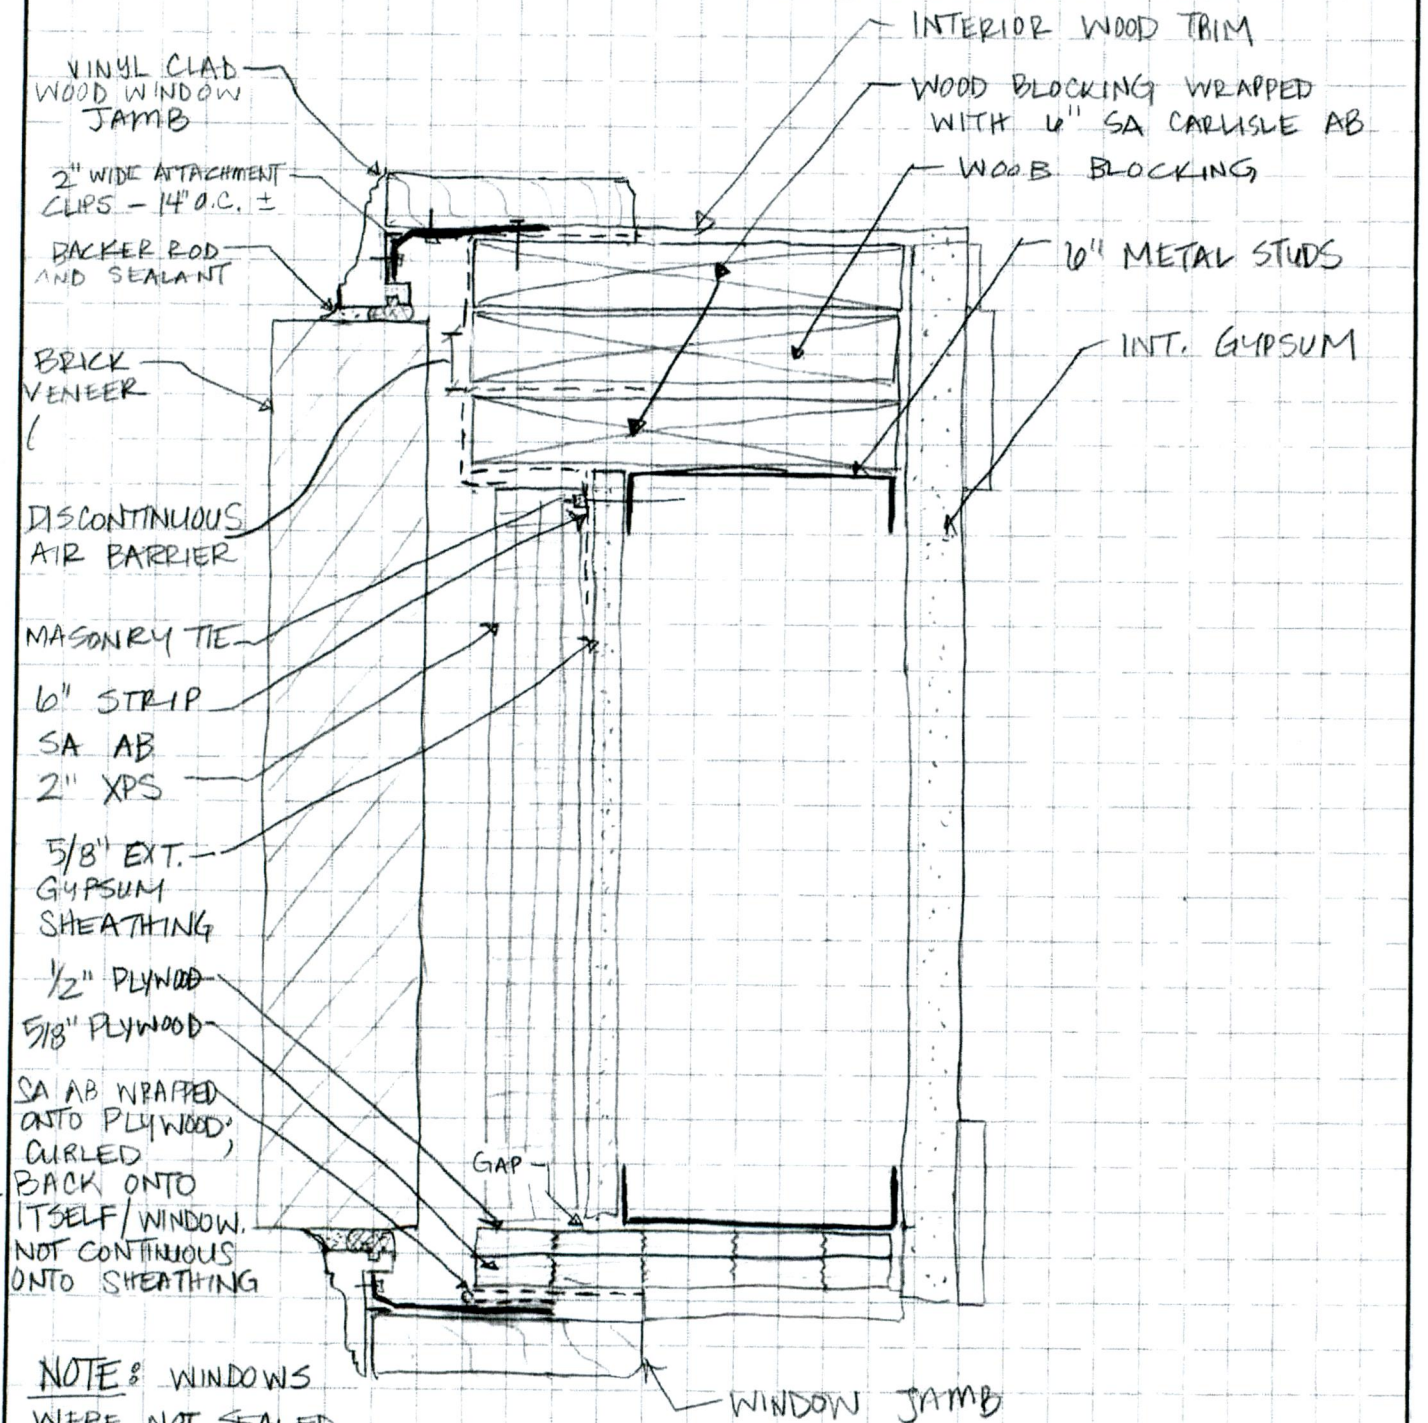 VINYL CLAD
WOOD WINDOW
JAMB
2" WIDE ATTACHMENT
CLIPS - 14" O.C. ±
BACKER ROD
AND SEALANT
BRICK
VENEER
(
DISCONTINUOUS
AIR BARRIER
MASONRY TIE
6" STRIP
SA AB
2" XPS
5/8" EXT.
GYPSUM
SHEATHING
1/2" PLYWOOD
5/8" PLYWOOD
SA AB WRAPPED
ONTO PLYWOOD;
CURLED
BACK ONTO
ITSELF/WINDOW.
NOT CONTINUOUS
ONTO SHEATHING
NOTE: WINDOWS
WERE NOT SEALED
INTERIOR WOOD TRIM
WOOD BLOCKING WRAPPED
WITH 6" SA CARLISLE AB
WOOB BLOCKING
6" METAL STUDS
INT. GYPSUM
GAP
WINDOW JAMB